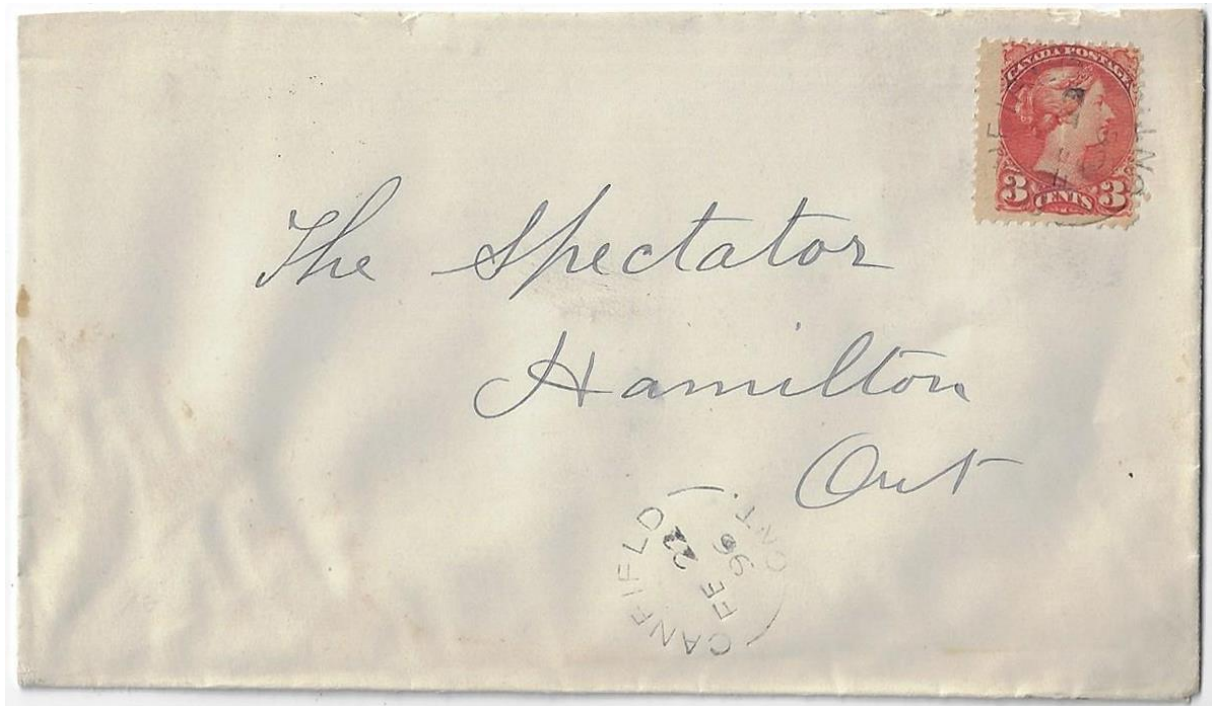 CANADA POSTAGE
3 CENTS 3
The Spectator
Hamilton
Ont
CANFIELD
ONT.
22
FE
96